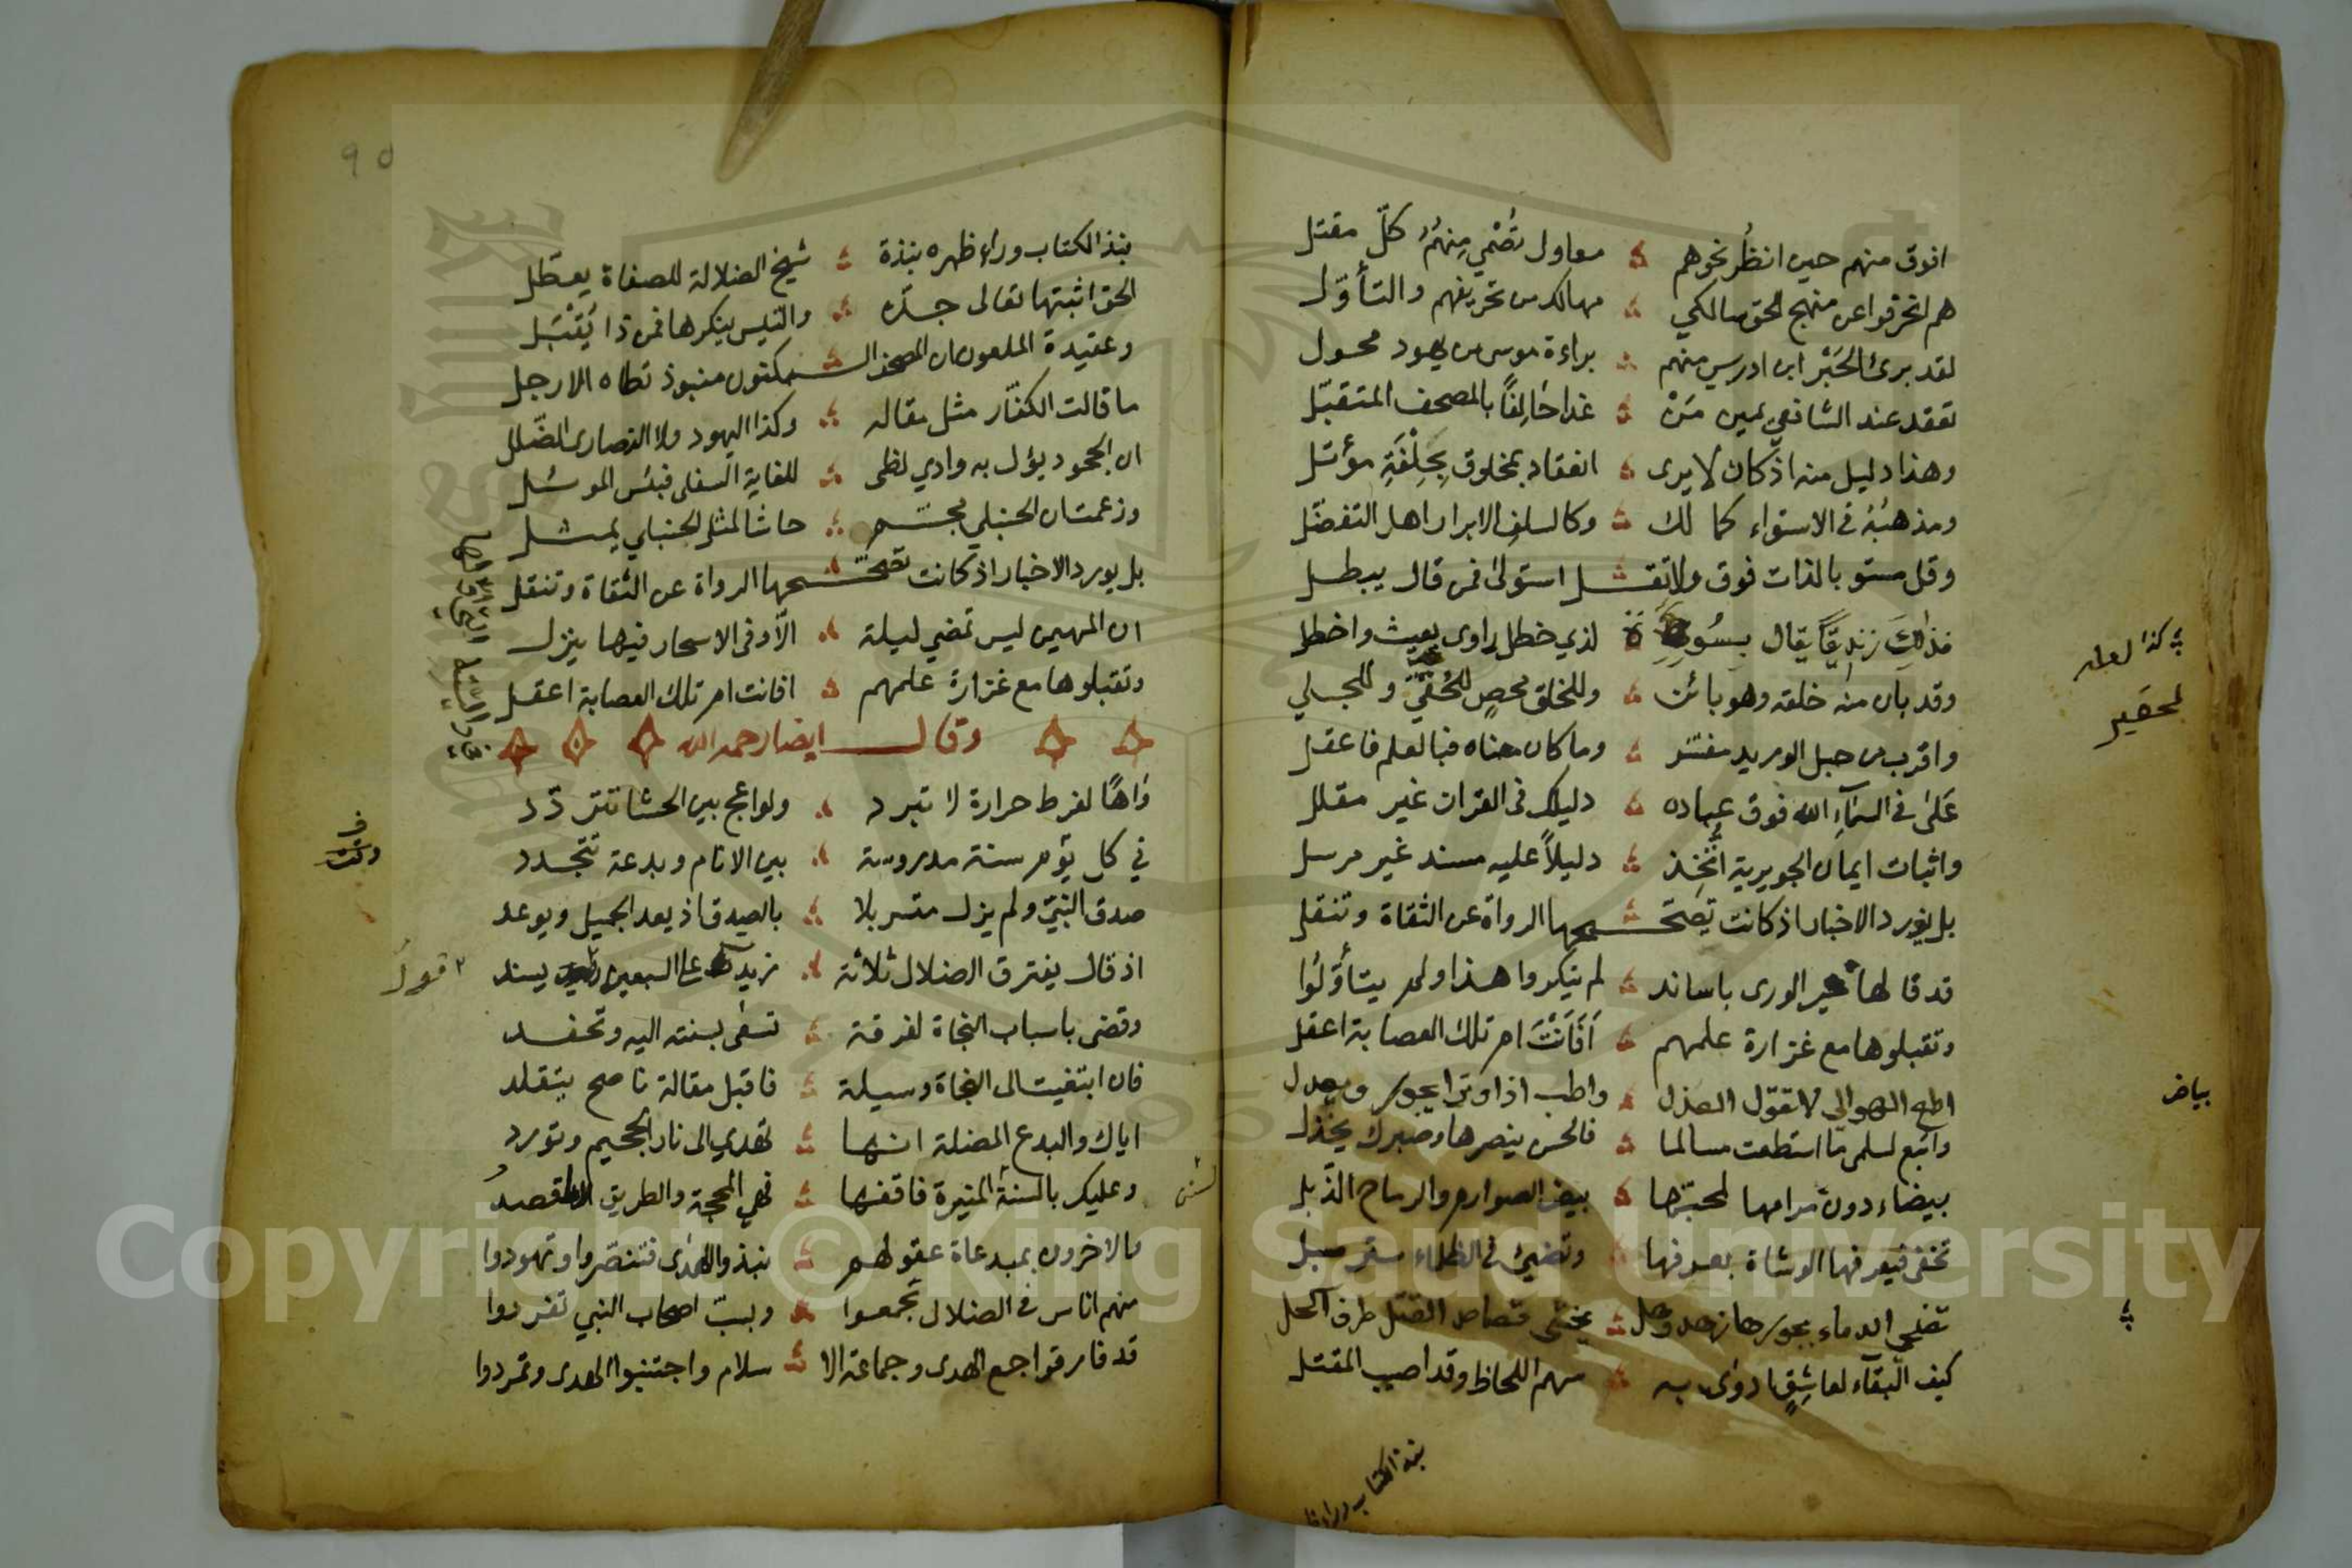 افوق منهم حين انظر نحوهم معاول تصمي منهم كل مقتل
هم انحرفوا عن منهج الحق سالكي مهالك من تحريفهم والتأول
لقد برئ الحبر ابن ادريس منهم براءة موسى من يهود محول
تعقد عند الشافعي يمين من غدا حالفاً بالمصحف المتقبل
وهذا دليل منه اذ كان لا يرى انعقاد بمخلوق بحلفة مؤتل
ومذهبه في الاستواء كما لك وكالسلف الابرار اهل التفضل
وقل مستو بالذات فوق ولا تقل استولى فمن قال يبطل
فذلك زنديقاً يقال لذي خطل راوى يعيث واخطل
وقد بان منه خلقه وهو بائن وللخلق محص للخفي وللجلي
واقرب من حبل الوريد مفسر وما كان معناه فبا لعلم فاعقل
على في السمآء الله فوق عباده دليلك في القران غير مقلل
واثبات ايمان الجويرية اتخذ دليلاً عليه مسند غير مرسل
بل يورد الاخبار اذ كانت تصححها الرواة عن الثقاة وتنقل
قد قالها خير الورى باساند لم ينكروا هذا ولم يتأولوا
وتقبلوها مع غزارة علمهم أفأنت ام تلك العصابة اعقل
اطع الهوالي لا تقول العذل واطب اذا وترا يجور ويعدل
واتبع لسلمى ما استطعت مسالما فالحسن ينصرها وصبرك يخذل
بيضاء دون مرامها لمحبها بيض الصوارم والرماح الذبل
تخفى فيعرفها الوشاة بعرفها وتضيئ في الظلماء ستر مسبل
تضحى الدماء بجورها يخشى قصاص القتل طرف اكحل
كيف البقآء لعاشق اودى به سهم اللحاظ وقد اصيب المقتل
كذا لعله
لحقير
بياض
نبذ الكتاب ورا
٩٥
نبذ الكتاب وراء ظهره نبذة شيخ الضلالة للصفاة يعطل
الحق اثبتها تعالى جده والتيس ينكرها فمن ذا يقبل
وعقيدة الملعون ان المصحف المكنون منبوذ تطاه الارجل
ما قالت الكفار مثل مقاله وكذا اليهود ولا النصارى الضلل
ان الجحود يؤل به وادي لظى للغاية السفلى فبئس الموئل
وزعمت ان الحنبلي مجسم حاشا لمثل الحنبلي يمثل
بل يورد الاخبار اذ كانت تصححها الرواة عن الثقاة وتنقل
ان المهيمن ليس تمضي ليلة الا وفى الاسحار فيها ينزل
وتقبلوها مع غزارة علمهم افانت ام تلك العصابة اعقل
وقال ايضا رحمه الله
واهًا لفرط حرارة لا تبرد ولواعج بين الحشا تتردد
في كل يوم سنة مدروسة بين الانام وبدعة تتجدد
صدق النبي ولم يزل متسربلا بالصدق اذ يعد الجميل ويوعد
اذ قال يفترق الضلال ثلاثة زيدت على السبعين يسند
وقضى باسباب النجاة لفرقة تسعى بسنته اليه وتحفد
فان ابتغيت الى النجاة وسيلة فاقبل مقالة ناصح يتقلد
اياك والبدع المضلة انها تهدي الى نار الجحيم وتورد
وعليك بالسنة المنيرة فاقفها فهي المحجة والطريق الاقصد
فالاخرون بمبدعاة عقولهم نبذوا الهدى فتنصروا وتهودوا
منهم اناس في الضلال تجمعوا وبسب اصحاب النبي تفردوا
قد فارقوا جمع الهدى وجماعة الا سلام واجتنبوا الهدى وتمردوا
قول
Copyright © King Saud University
1957